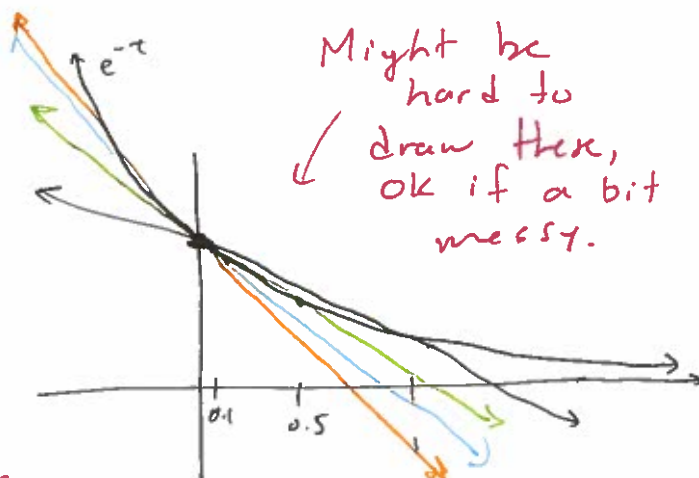 e^{-t}
Might be
hard to
draw these,
ok if a bit
messy.
0.1
0.5
1